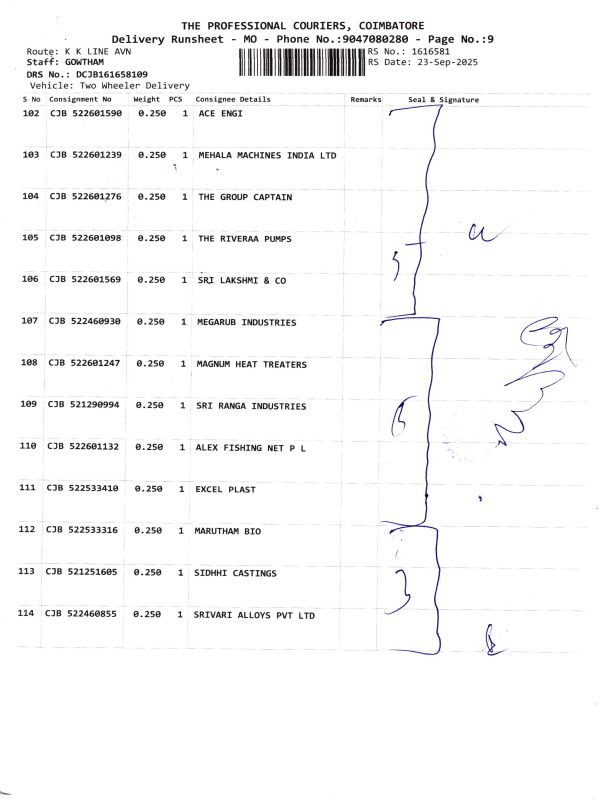 THE PROFESSIONAL COURIERS, COIMBATORE
Delivery Runsheet - MO - Phone No.:9047080280 - Page No.:9
Route: K K LINE AVN RS No.: 1616581
Staff: GOWTHAM RS Date: 23-Sep-2025
DRS No.: DCJB161658109
Vehicle: Two Wheeler Delivery
S No Consignment No Weight PCS Consignee Details Remarks Seal & Signature
102 CJB 522601590 0.250 1 ACE ENGI
103 CJB 522601239 0.250 1 MEHALA MACHINES INDIA LTD
104 CJB 522601276 0.250 1 THE GROUP CAPTAIN
105 CJB 522601098 0.250 1 THE RIVERAA PUMPS
106 CJB 522601569 0.250 1 SRI LAKSHMI & CO
107 CJB 522460930 0.250 1 MEGARUB INDUSTRIES
108 CJB 522601247 0.250 1 MAGNUM HEAT TREATERS
109 CJB 521290994 0.250 1 SRI RANGA INDUSTRIES
110 CJB 522601132 0.250 1 ALEX FISHING NET P L
111 CJB 522533410 0.250 1 EXCEL PLAST
112 CJB 522533316 0.250 1 MARUTHAM BIO
113 CJB 521251605 0.250 1 SIDHHI CASTINGS
3
114 CJB 522460855 0.250 1 SRIVARI ALLOYS PVT LTD